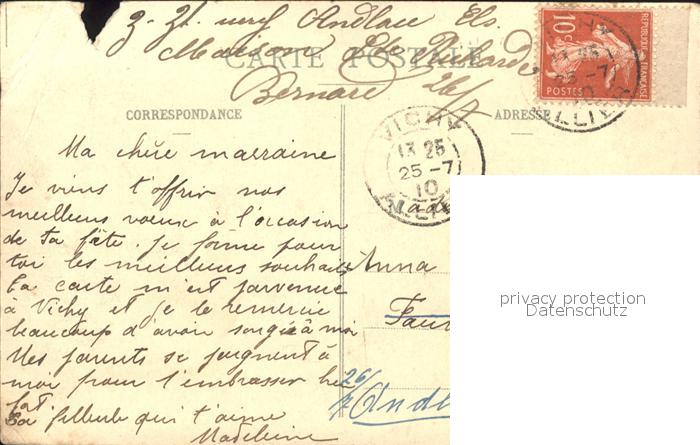 CARTE POSTALE
Maison
Bernard 26/7
10c
REPUBLIQUE FRANÇAISE
POSTES
CORRESPONDANCE
ADRESSE
VICHY
13 25
25 -7
10
ALLIER
Ma chère marraine
Je viens t'offrir nos
meilleurs vœux à l'occasion
de ta fête. Je forme pour
toi les meilleurs souhaits
Ta carte m'est parvenue
à Vichy et je te remercie
beaucoup d'avoir songé à moi
Mes parents se joignent à
moi pour t'embrasser bien
fort.
Ta filleule qui t'aime
Madeleine
Anna
26/7
privacy protection
Datenschutz